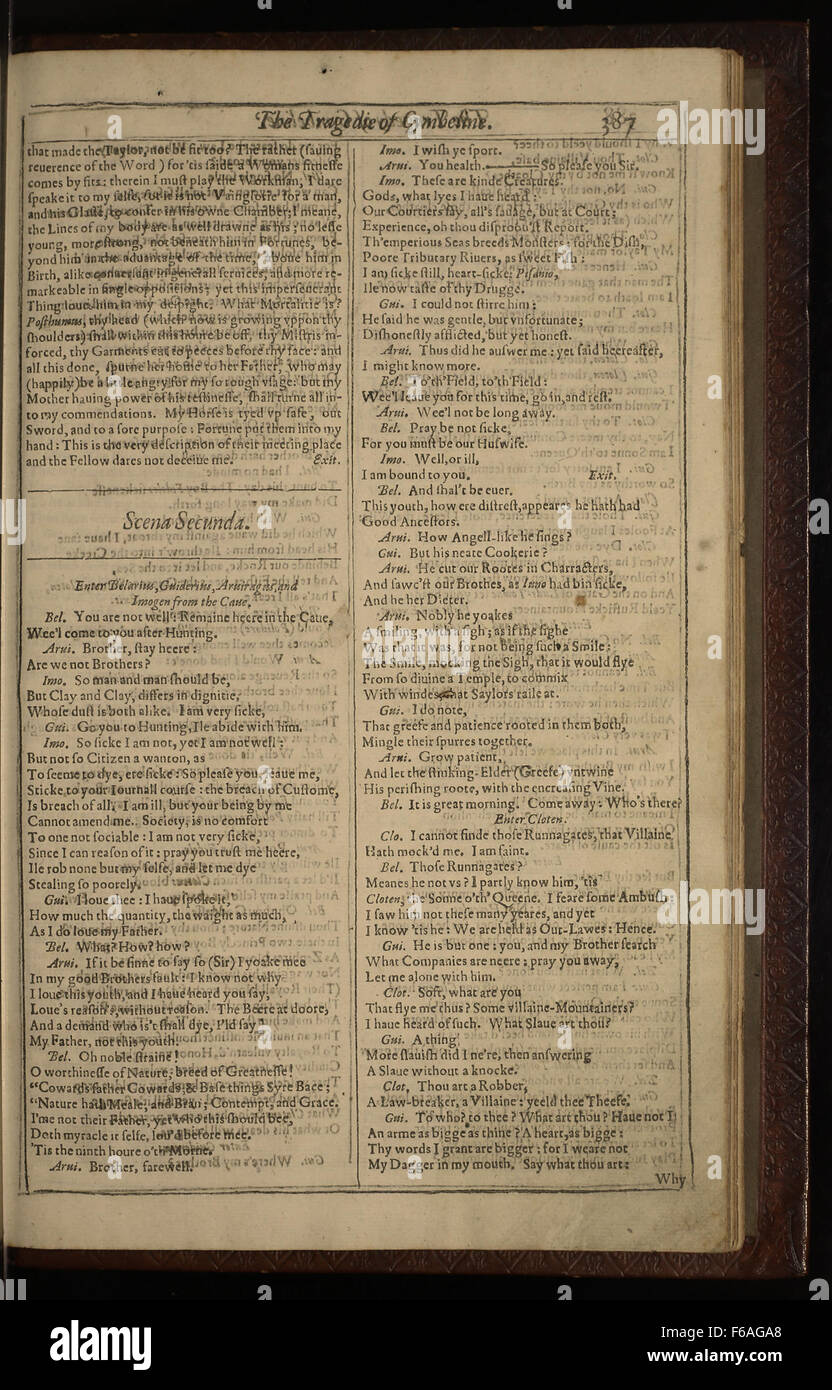 The Tragedie of Cymbeline. 387
that made the (Taylor, not be fit too? The rather (ſauing
reuerence of the Word) for 'tis ſaide a Womans fitneſſe
comes by fits: therein I muſt play the Workman, I dare
ſpeake it to my ſelfe, for it is not Vainglorie for a man,
and his Glaſſe, to confer in his owne Chamber; I meane,
the Lines of my body are as well drawne as his; no leſſe
young, more ſtrong, not beneath him in Fortunes, be-
yond him in the aduantage of the time, aboue him in
Birth, alike conuerſant in generall ſeruices, and more re-
markeable in ſingle oppoſitions; yet this imperſeuerant
Thing loues him in my deſpight. What Mortalitie is?
Poſthumus, thy head (which now is growing vppon thy
ſhoulders) ſhall within this houre be off, thy Miſtris in-
forced, thy Garments cut to peeces before thy face: and
all this done, ſpurne her home to her Father, who may
(happily) be a little angry for my ſo rough vſage: but my
Mother hauing power of his teſtineſſe, ſhall turne all in-
to my commendations. My Horſe is tyed vp ſafe, out
Sword, and to a ſore purpoſe: Fortune put them into my
hand: This is the very deſcription of their meeting place
and the Fellow dares not deceiue me. Exit.
Scena Secunda.
Enter Belarius, Guiderius, Aruiragus, and
Imogen from the Caue.
Bel. You are not well: Remaine heere in the Caue,
Wee'l come to you after Hunting.
Arui. Brother, ſtay heere:
Are we not Brothers?
Imo. So man and man ſhould be,
But Clay and Clay, differs in dignitie,
Whoſe duſt is both alike. I am very ſicke,
Gui. Go you to Hunting, Ile abide with him.
Imo. So ſicke I am not, yet I am not well:
But not ſo Citizen a wanton, as
To ſeeme to dye, ere ſicke: So pleaſe you, leaue me,
Sticke to your Iournall courſe: the breach of Cuſtome,
Is breach of all. I am ill, but your being by me
Cannot amend me. Society, is no comfort
To one not ſociable: I am not very ſicke,
Since I can reaſon of it: pray you truſt me heere,
Ile rob none but my ſelfe, and let me dye
Stealing ſo poorely.
Gui. I loue thee: I haue ſpoke it,
How much the quantity, the waight as much,
As I do loue my Father.
Bel. What? How? how?
Arui. If it be ſinne to ſay ſo (Sir) I yoake mee
In my good Brothers fault: I know not why
I loue this youth, and I haue heard you ſay,
Loue's reaſon's, without reaſon. The Beere at doore,
And a demand who is't ſhall dye, I'ld ſay
My Father, not this youth.
Bel. Oh noble ſtraine!
O worthineſſe of Nature, breed of Greatneſſe!
"Cowards father Cowards, & Baſe things Syre Bace;
"Nature hath Meale, and Bran; Contempt, and Grace.
I'me not their Father, yet who this ſhould bee,
Doth myracle it ſelfe, lou'd before mee.
'Tis the ninth houre o'th'Morne.
Arui. Brother, farewell.
Imo. I wiſh ye ſport.
Arui. You health. So pleaſe you Sir.
Imo. Theſe are kinde Creatures.
Gods, what lyes I haue heard:
Our Courtiers ſay, all's ſauage, but at Court;
Experience, oh thou diſproou'ſt Report.
Th'emperious Seas breeds Monſters; for the Diſh,
Poore Tributary Riuers, as ſweet Fiſh:
I am ſicke ſtill, heart-ſicke; Piſanio,
Ile now taſte of thy Drugge.
Gui. I could not ſtirre him:
He ſaid he was gentle, but vnfortunate;
Diſhoneſtly afflicted, but yet honeſt.
Arui. Thus did he anſwer me: yet ſaid heereafter,
I might know more.
Bel. To'th'Field, to'th'Field:
Wee'l leaue you for this time, go in, and reſt.
Arui. Wee'l not be long away.
Bel. Pray be not ſicke,
For you muſt be our Huſwife.
Imo. Well, or ill,
I am bound to you. Exit.
Bel. And ſhal't be euer.
This youth, how ere diſtreſt, appeares he hath had
Good Anceſtors.
Arui. How Angell-like he ſings?
Gui. But his neate Cookerie?
Arui. He cut our Rootes in Charracters,
And ſawc'ſt our Brothes, as Iuno had bin ſicke,
And he her Dieter.
Arui. Nobly he yoakes
A ſmiling, with a ſigh; as if the ſighe
Was that it was, for not being ſuch a Smile:
The Smile, mocking the Sigh, that it would flye
From ſo diuine a Temple, to commix
With windes, that Saylors raile at.
Gui. I do note,
That greefe and patience rooted in them both,
Mingle their ſpurres together.
Arui. Grow patient,
And let the ſtinking-Elder (Greefe) vntwine
His periſhing roote, with the encreaſing Vine.
Bel. It is great morning. Come away: Who's there?
Enter Cloten.
Clo. I cannot finde thoſe Runnagates, that Villaine
Hath mock'd me. I am faint.
Bel. Thoſe Runnagates?
Meanes he not vs? I partly know him, 'tis
Cloten, the Sonne o'th'Queene. I feare ſome Ambuſh:
I ſaw him not theſe many yeares, and yet
I know 'tis he: We are held as Out-Lawes: Hence.
Gui. He is but one: you, and my Brother ſearch
What Companies are neere: pray you away,
Let me alone with him.
Clot. Soft, what are you
That flye me thus? Some villaine-Mountainers?
I haue heard of ſuch. What Slaue art thou?
Gui. A thing
More ſlauiſh did I ne're, then anſwering
A Slaue without a knocke.
Clot. Thou art a Robber,
A Law-breaker, a Villaine: yeeld thee Theefe.
Gui. To who? to thee? What art thou? Haue not I
An arme as bigge as thine? A heart, as bigge:
Thy words I grant are bigger: for I weare not
My Dagger in my mouth. Say what thou art:
Why
alamy
a
Image ID: F6AGA8
www.alamy.com